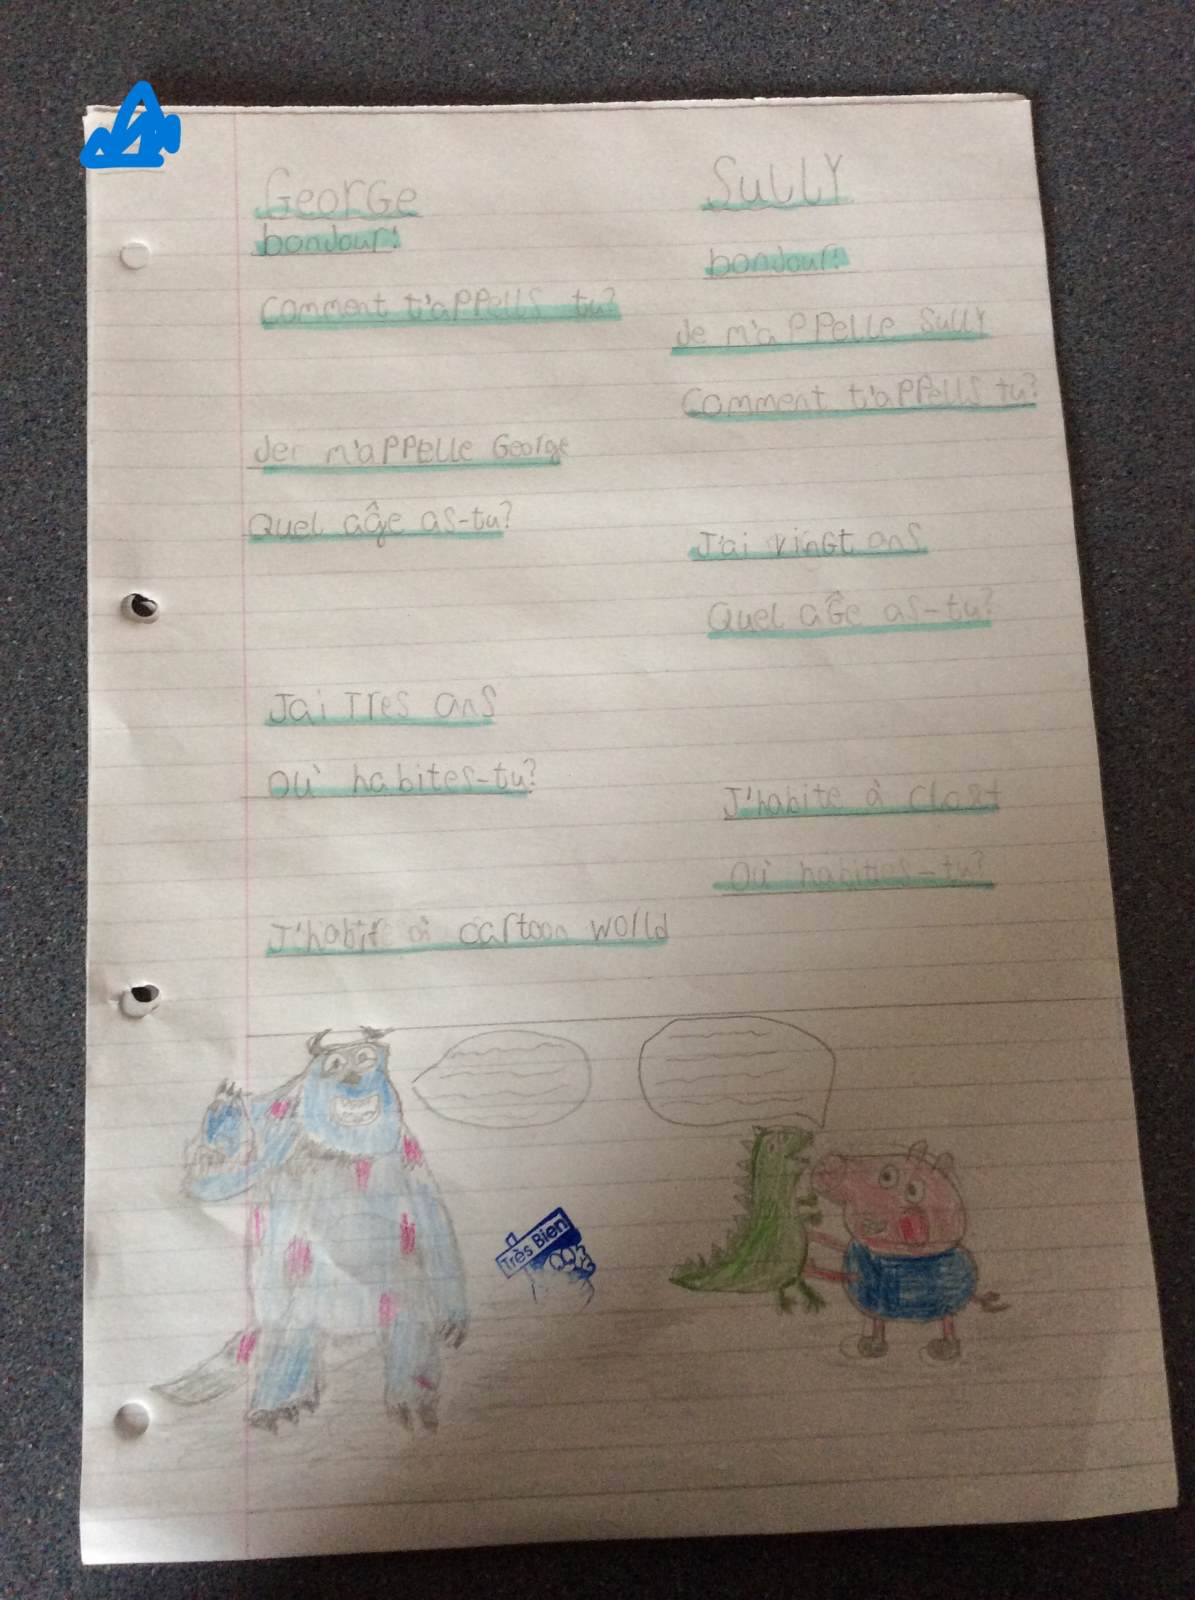 George
Sully
bonjour!
bonjour!
Comment t'appells tu?
Je m'appelle Sully
Comment t'appells tu?
Jer m'appelle George
Quel aĝe as-tu?
J'ai vingt ans
Quel aĝe as-tu?
J'ai Tres ans
Où habites-tu?
J'habite à Closet
Où habites-tu?
J'habit à cartoon world
Très Bien